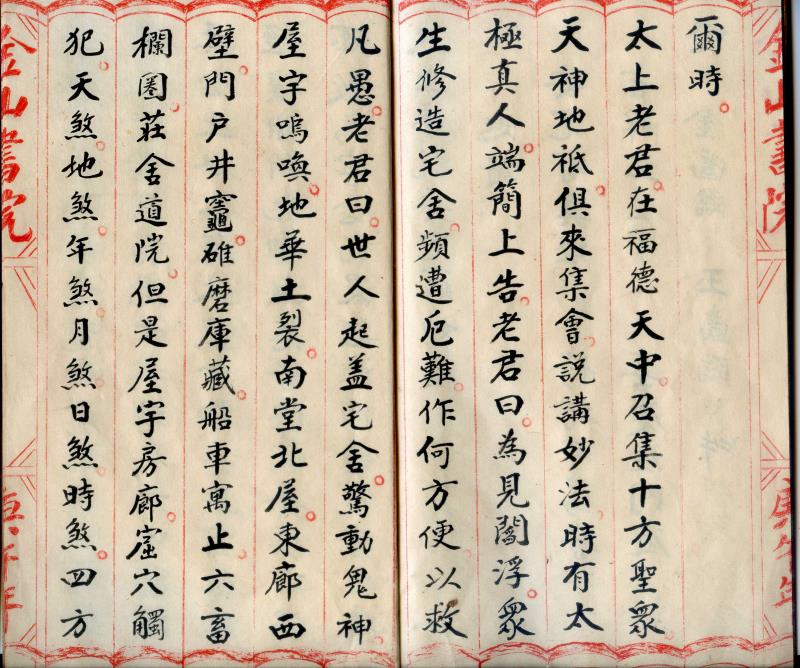 金山書院
爾時
太上老君在福德天中召集十方聖眾
天神地祇俱來集會説講妙法時有太
極真人端簡上告老君曰為見閻浮眾
生修造宅舍頻遭厄難作何方便以救
凡愚老君曰世人起盖宅舍驚動鬼神
屋宇嗚喚地華土裂南堂北屋東廊西
壁門戶井竈碓磨庫藏船車寓止六畜
欄圈莊舍道院但是屋宇房廊窟穴觸
犯天煞地煞年煞月煞日煞時煞四方
金山書院